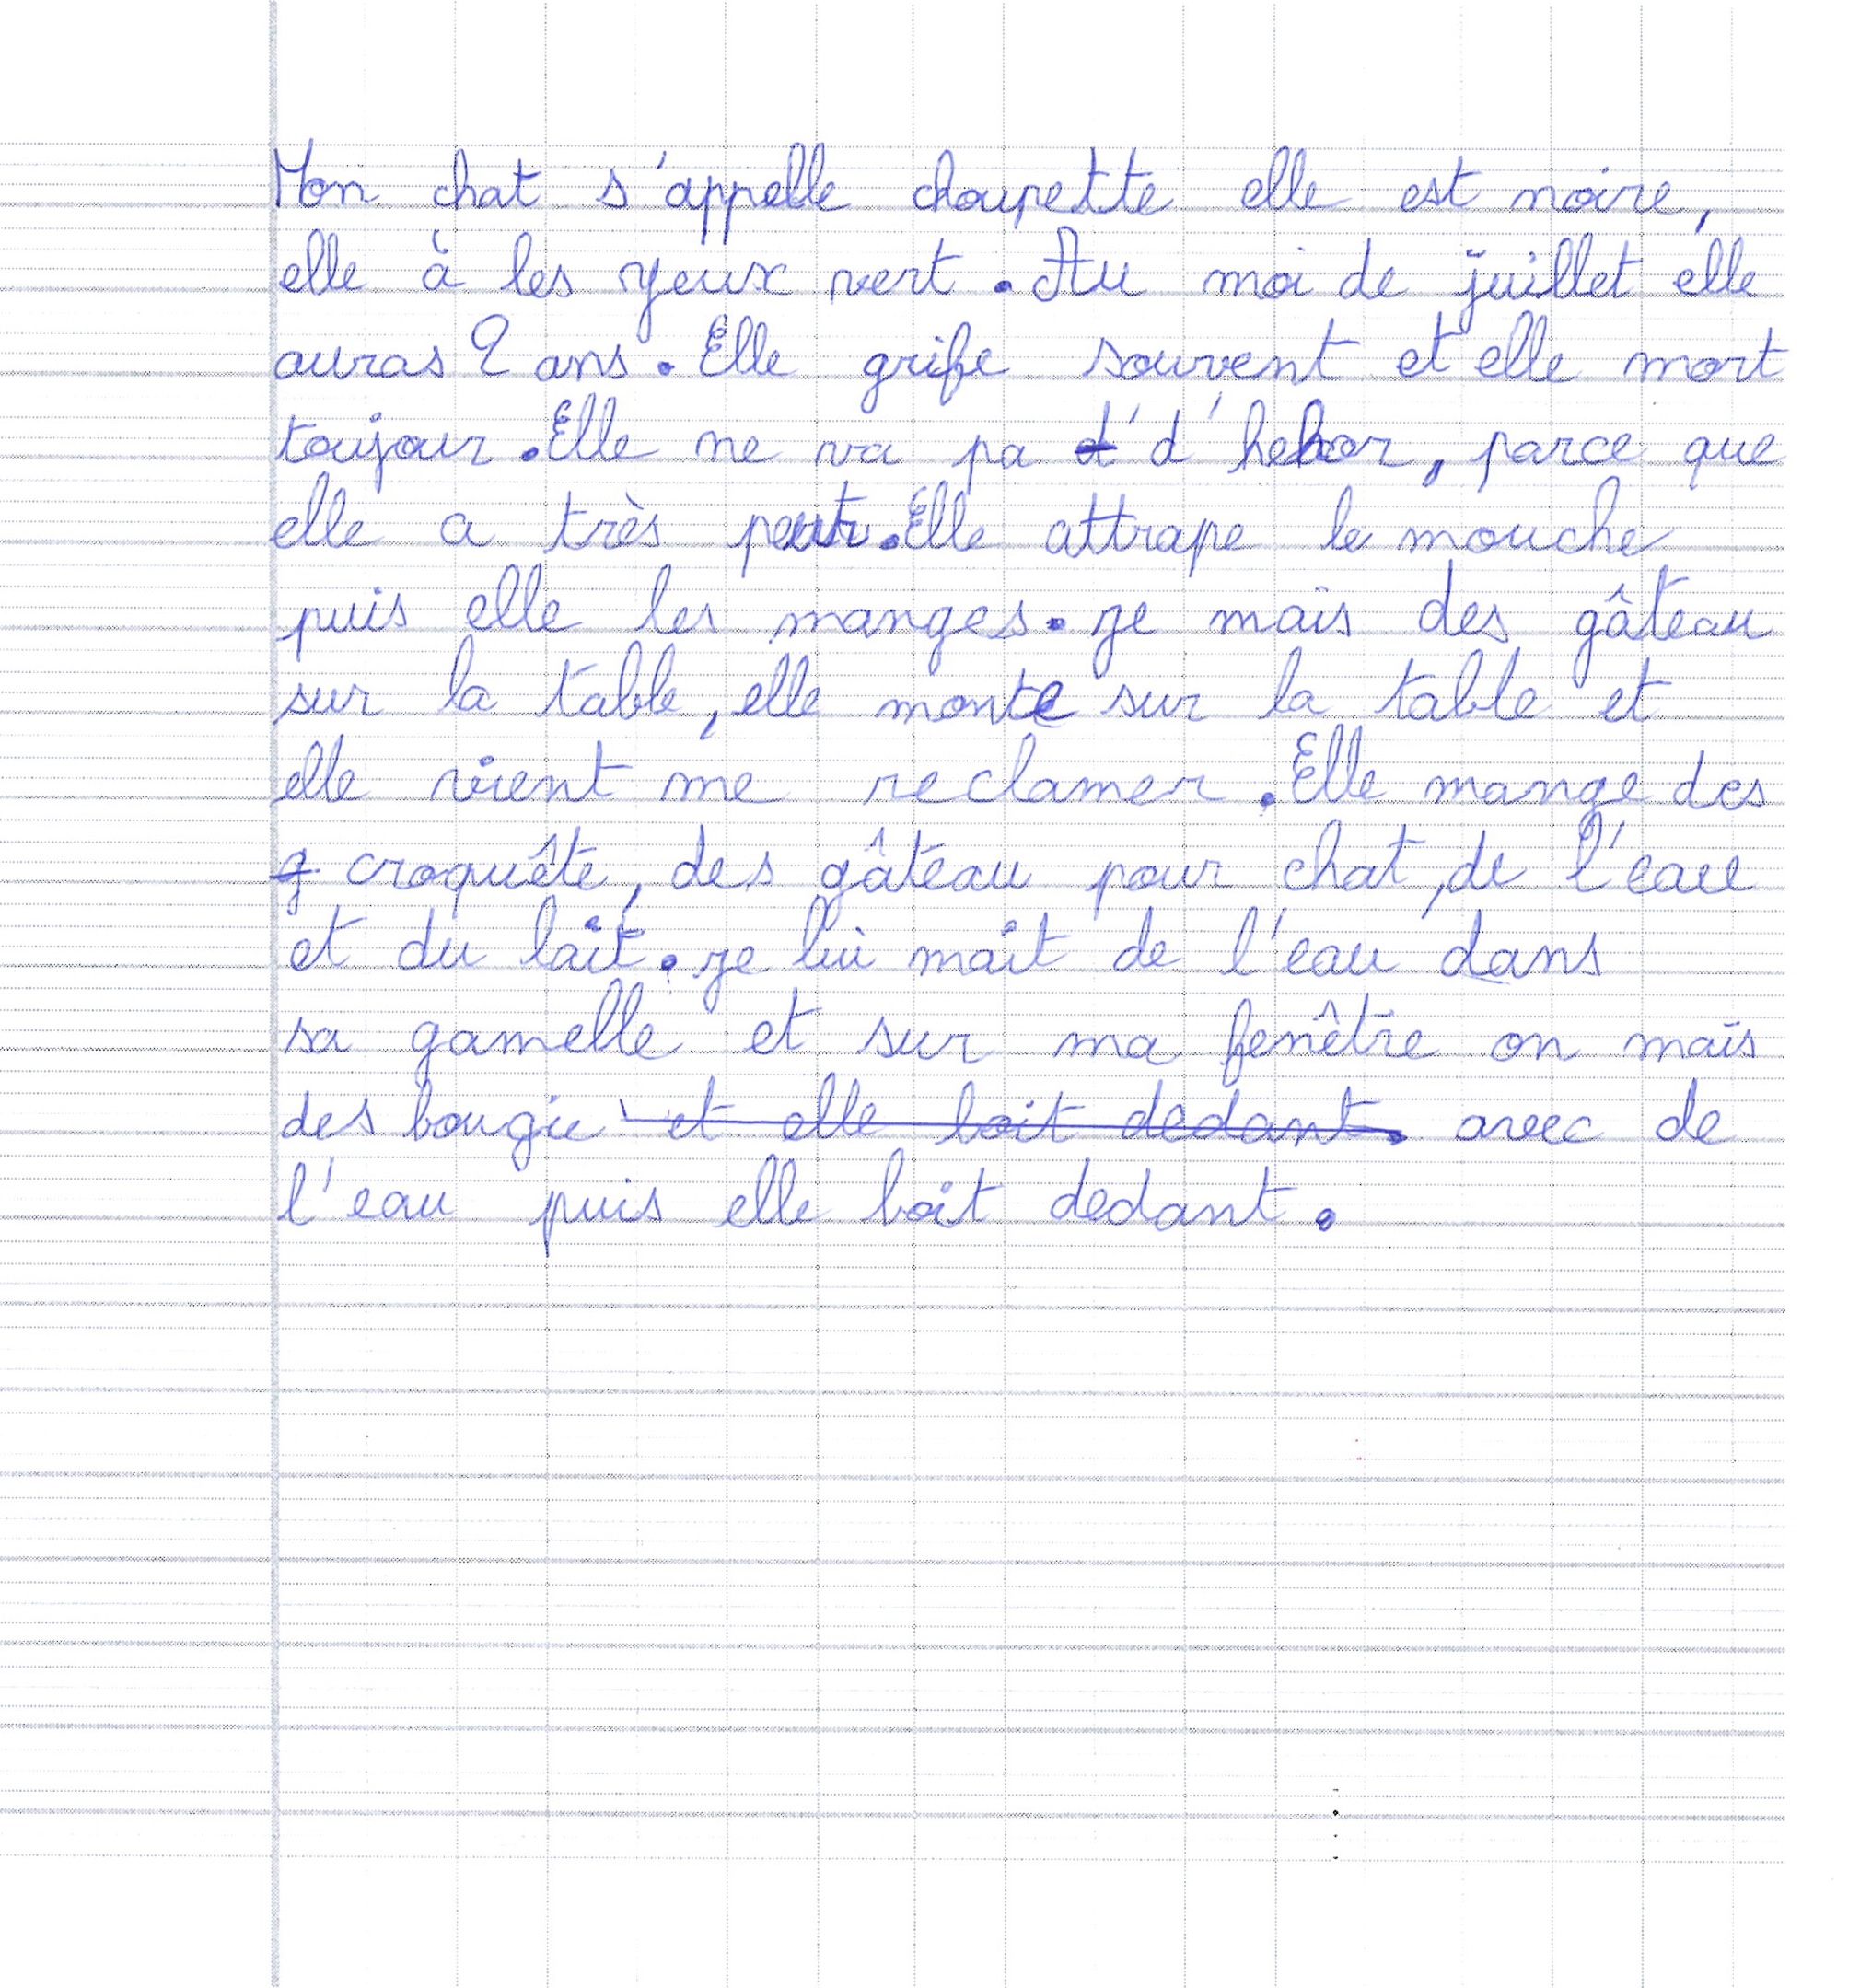 Mon chat s'appelle choupette elle est noire,
elle à les yeux vert. Au moi de juillet elle
auras 2 ans. Elle grife souvent et elle mort
toujour. Elle ne va pa d' d'hehor, parce que
elle a très peur. Elle attrape le mouche
puis elle les manges. je mais des gâteau
sur la table, elle monte sur la table et
elle vient me reclamer. Elle mange des
g croquête, des gâteau pour chat, de l'eau
et du lait. je lui mait de l'eau dans
sa gamelle et sur ma fenêtre on mais
des bougie et elle boit dedant. avec de
l'eau puis elle boit dedant.